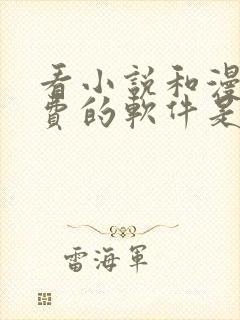 看小說和漫
費的軟件是
雷海軍